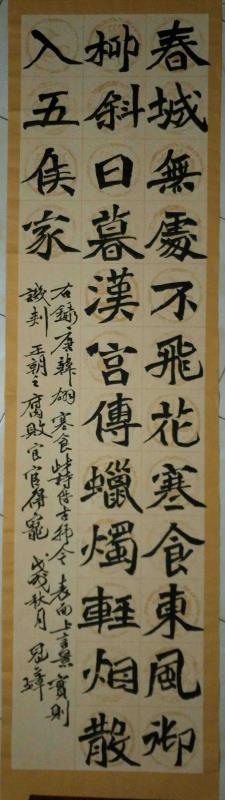 春城無處不飛花寒食東風御
柳斜日暮漢宮傳蠟燭輕烟散
入五侯家
右録唐韓翃寒食此詩借古諷今表面上言景實則
譏刺王朝之腐敗宦官得寵戊戌秋月冠